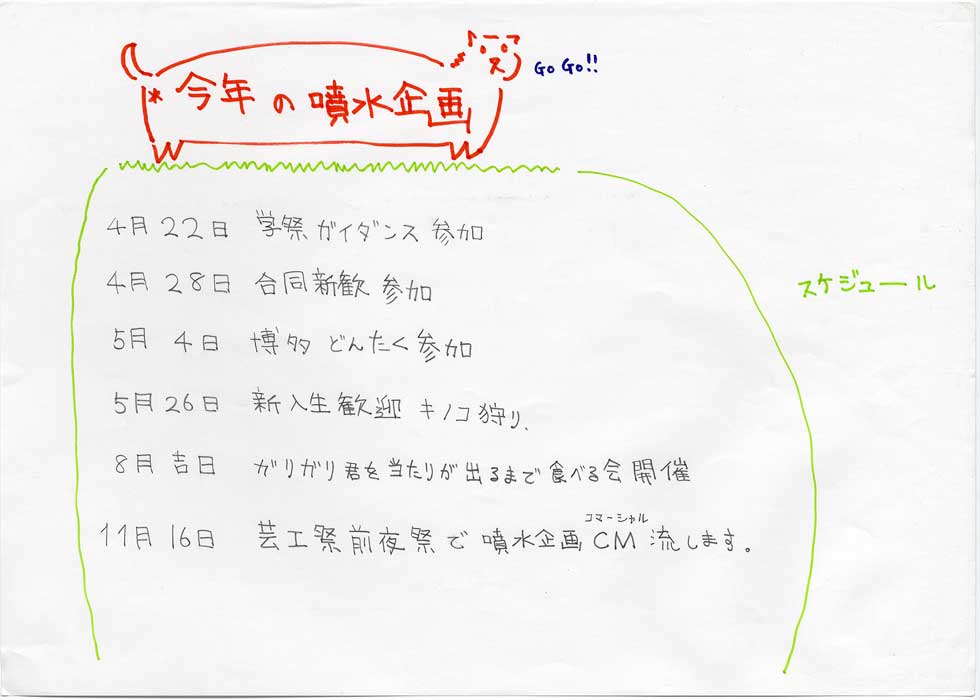 今年の噴水企画
Go Go!!
スケジュール
4月22日 学祭ガイダンス参加
4月28日 合同新歓参加
5月4日 博多どんたく参加
5月26日 新入生歓迎キノコ狩り.
8月吉日 ガリガリ君を当たりが出るまで食べる会開催
コマーシャル
11月16日 芸工祭前夜祭で噴水企画CM流します。